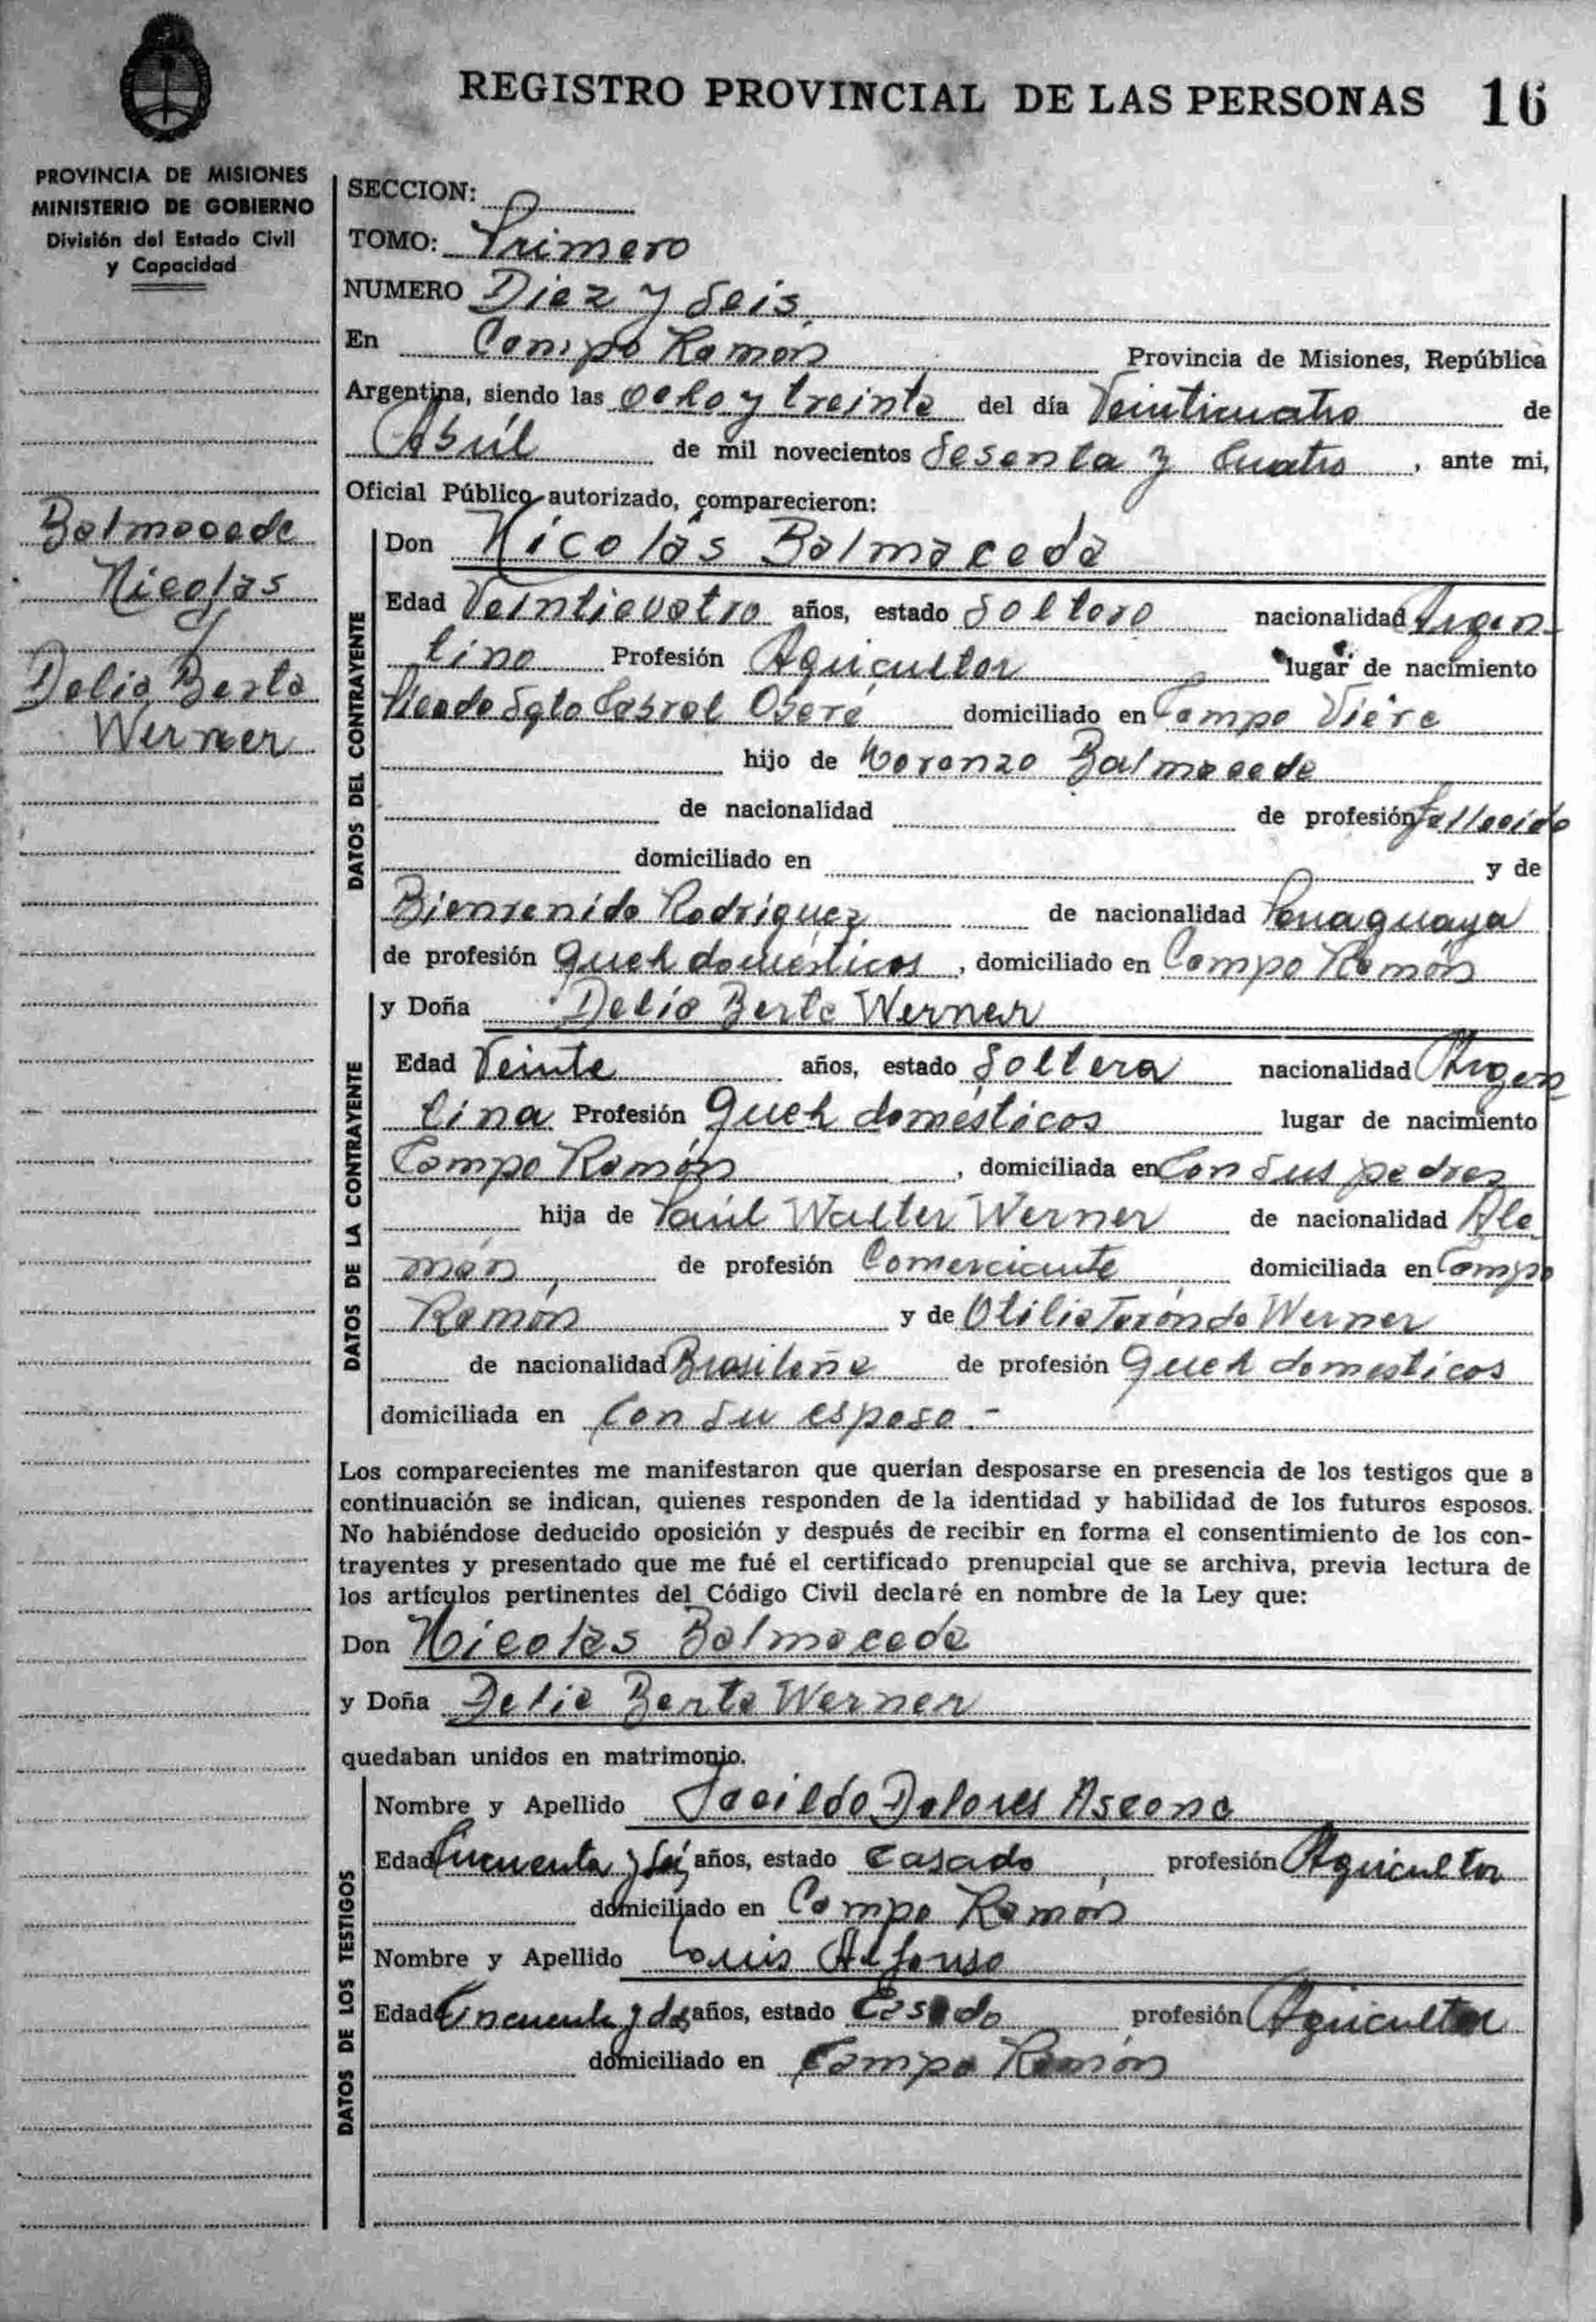 REGISTRO PROVINCIAL DE LAS PERSONAS 16
PROVINCIA DE MISIONES
MINISTERIO DE GOBIERNO
División del Estado Civil
y Capacidad
Balmaceda
Nicolás
y
Delia Berta
Werner
SECCION:
TOMO: Primero
NUMERO Diez y Seis
En Campo Ramón Provincia de Misiones, República
Argentina, siendo las ocho y treinta del día Veinticuatro de
Abril de mil novecientos Sesenta y Cuatro, ante mi,
Oficial Público autorizado, comparecieron:
DATOS DEL CONTRAYENTE
Don Nicolás Balmaceda
Edad Veinticuatro años, estado Soltero nacionalidad Argen-
tino Profesión Agricultor lugar de nacimiento
Sgto Cabral Oberá domiciliado en Campo Viera
hijo de Lorenzo Balmaceda
de nacionalidad de profesión fallecido
domiciliado en y de
Bienvenida Rodríguez de nacionalidad Paraguaya
de profesión Queh domésticos, domiciliado en Campo Ramón
DATOS DE LA CONTRAYENTE
y Doña Delia Berta Werner
Edad Veinte años, estado Soltera nacionalidad Argen
tina Profesión Queh domésticos lugar de nacimiento
Campo Ramón, domiciliada en Con Sus padres
hija de Paúl Walter Werner de nacionalidad Ale
mán, de profesión Comerciante domiciliada en Campo
Ramón y de Otilia de Werner
de nacionalidad Brasileña de profesión Queh domesticos
domiciliada en Con Su esposo.-
Los comparecientes me manifestaron que querían desposarse en presencia de los testigos que a
continuación se indican, quienes responden de la identidad y habilidad de los futuros esposos.
No habiéndose deducido oposición y después de recibir en forma el consentimiento de los con-
trayentes y presentado que me fué el certificado prenupcial que se archiva, previa lectura de
los artículos pertinentes del Código Civil declaré en nombre de la Ley que:
Don Nicolás Balmaceda
y Doña Delia Berta Werner
quedaban unidos en matrimonio.
DATOS DE LOS TESTIGOS
Nombre y Apellido Dolores Ascona
Edad Cincuenta y años, estado Casado profesión Agricultor
domiciliado en Campo Ramón
Nombre y Apellido Luis Alfonso
Edad Cincuenta y dos años, estado Casado profesión Agricultor
domiciliado en Campo Ramón